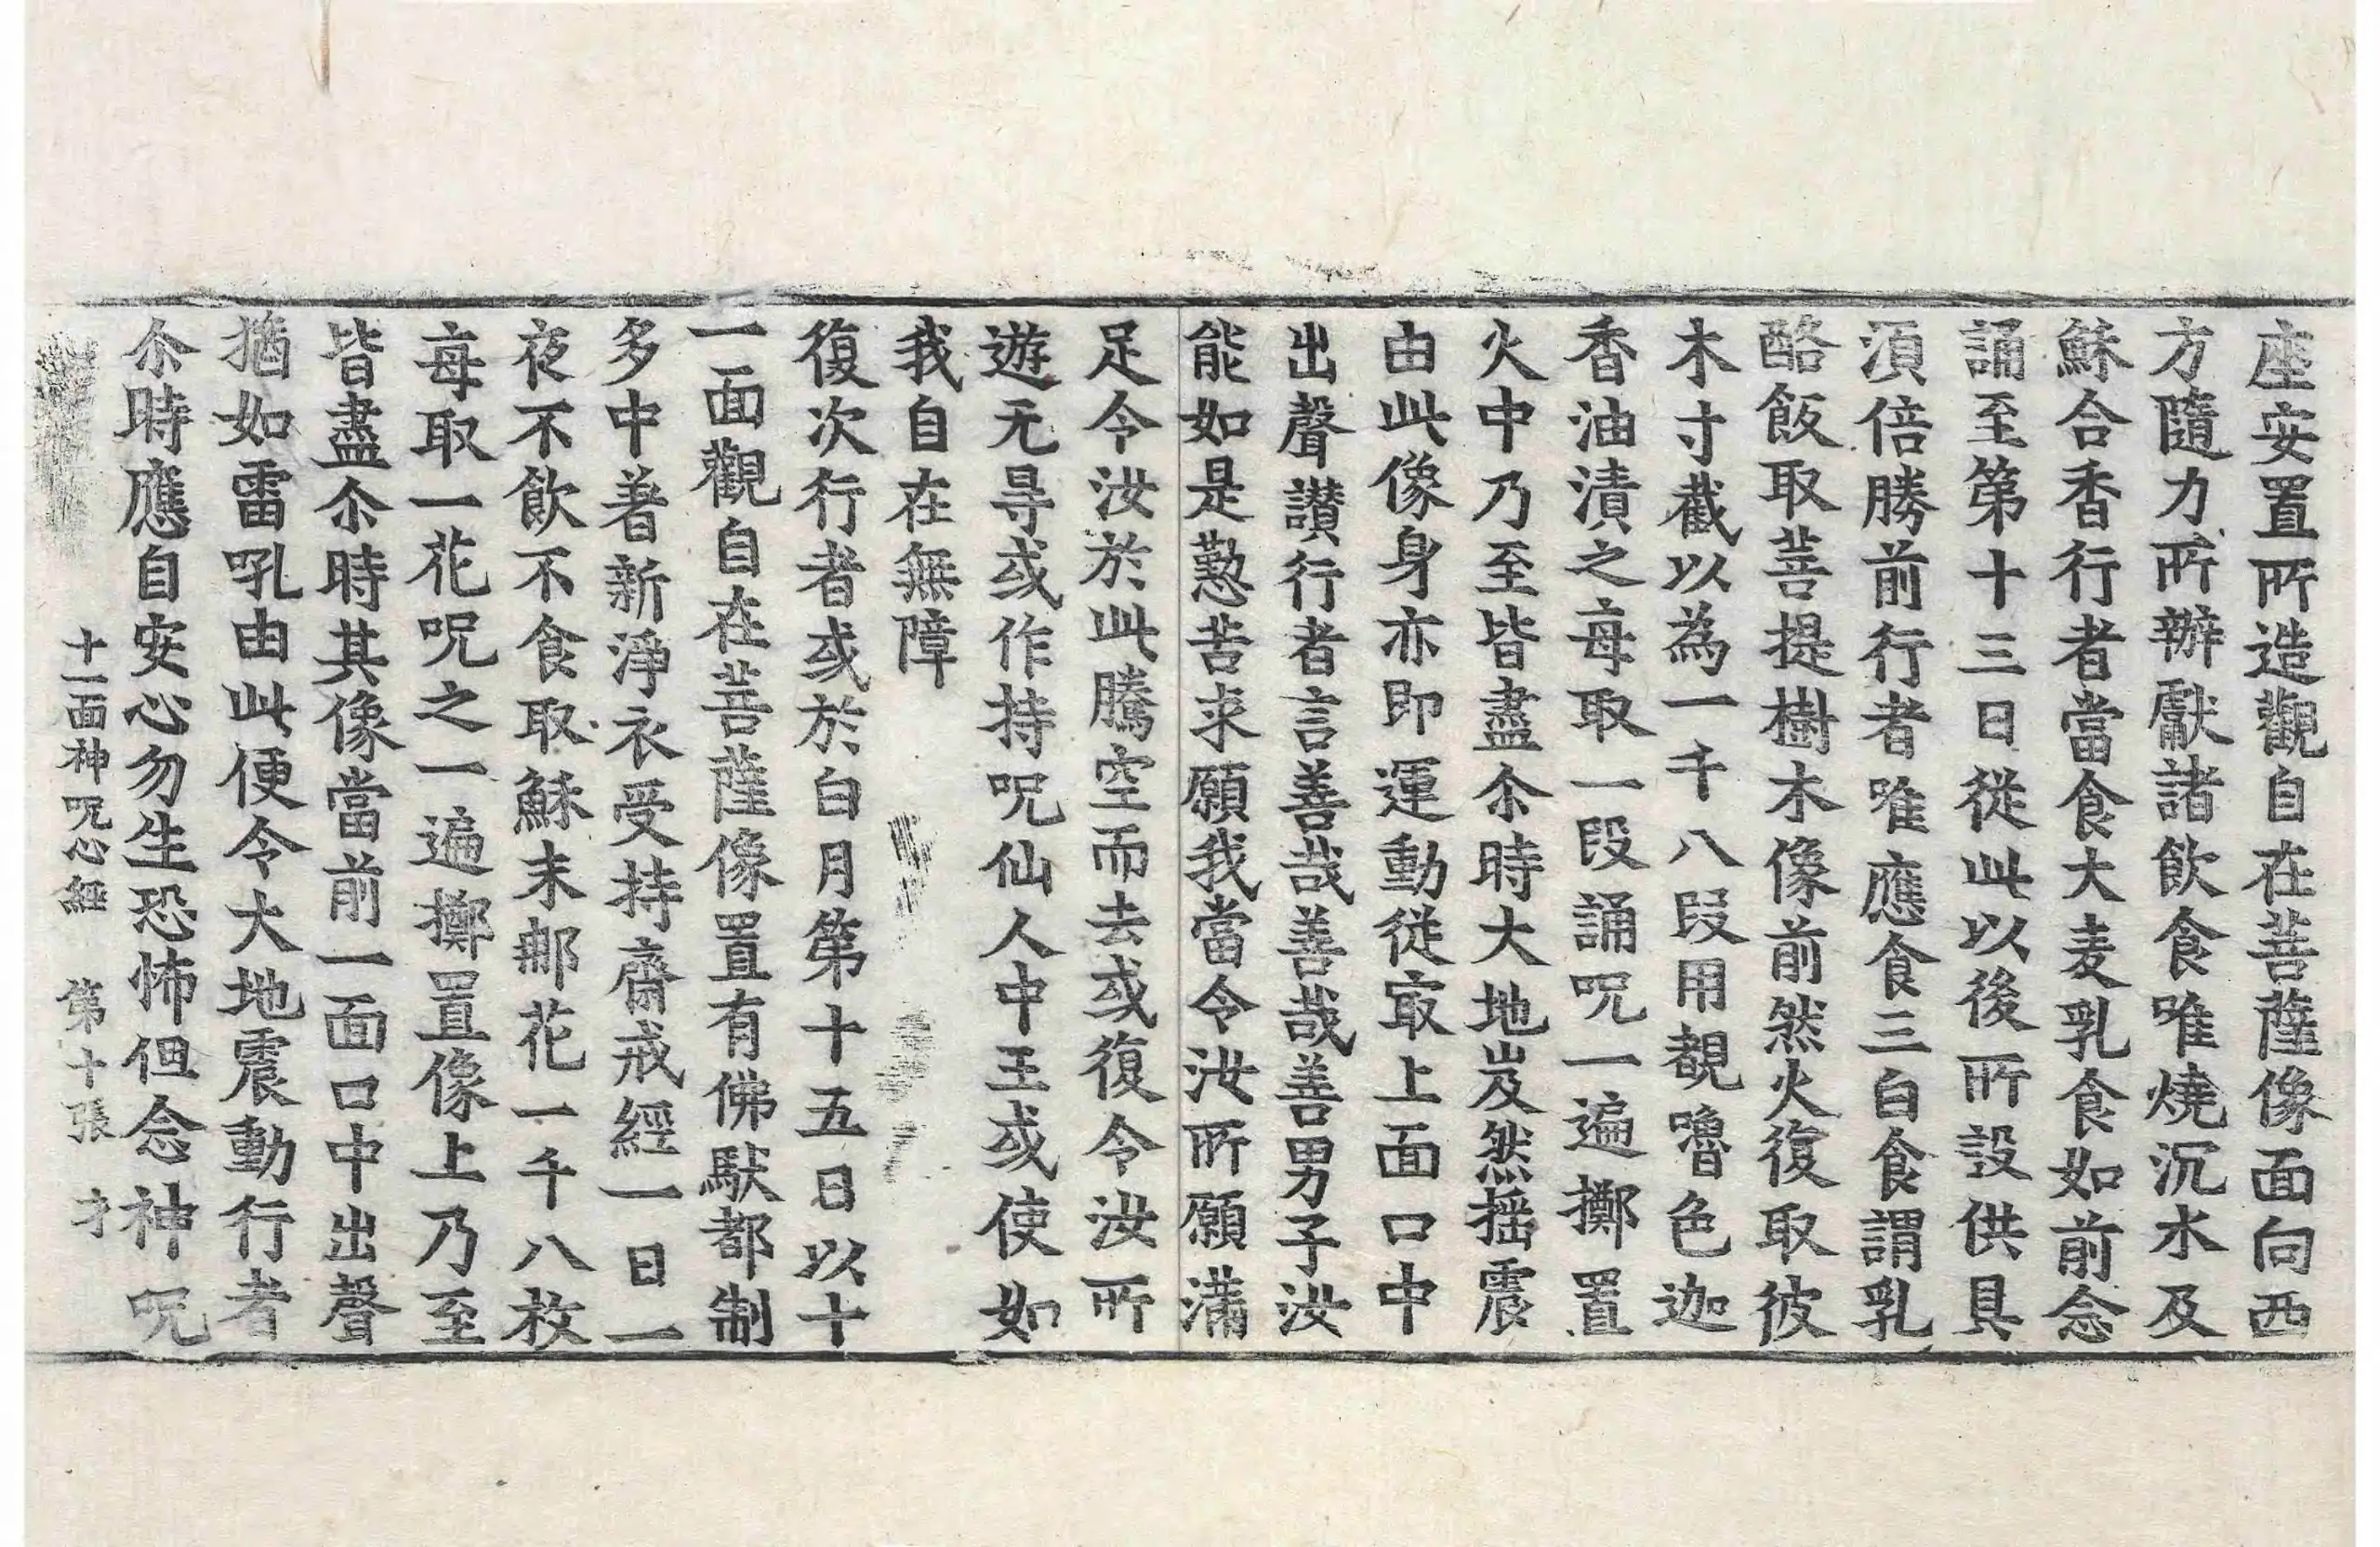 座安置所造觀自在菩薩像面向西
方隨力所辦獻諸飲食唯燒沉水及
蘇合香行者當食大麦乳食如前念
誦至第十三日從此以後所設供具
湏倍勝前行者唯應食三白食謂乳
酪飯取菩提樹木像前然火復取彼
木寸截以為一千八段用覩嚕色迦
香油漬之每取一段誦呪一遍擲置
火中乃至皆盡尒時大地岌然揺震
由此像身亦即運動從㝡上面口中
出聲讃行者言善哉善哉善男子汝
能如是懃苦求願我當令汝所願滿
足令汝於此騰空而去或復令汝所
遊无㝵或作持呪仙人中王或使如
我自在無障
復次行者或於白月第十五日以十
一面觀自在菩薩像置有佛馱都制
多中著新淨衣受持齋戒經一日一
夜不飲不食取蘇末那花一千八枚
每取一花呪之一遍擲置像上乃至
皆盡尒時其像當前一面口中出聲
猶如雷吼由此便令大地震動行者
尒時應自安心勿生恐怖但念神呪
十一面神呪心經　第十張　才